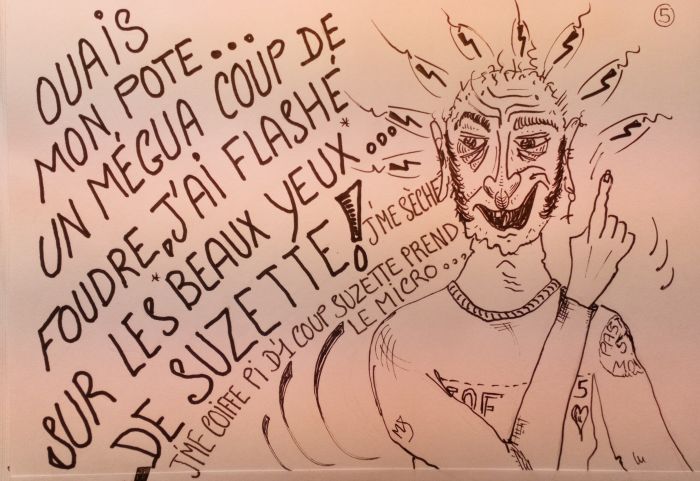 OUAIS
MON POTE...
UN MÉGUA COUP DE
FOUDRE, J'AI FLASHÉ
SUR LES* BEAUX YEUX*...
DE SUZETTE!
J'ME SÈCHE
J'ME COIFFE PI D'1 COUP SUZETTE PREND
LE MICRO...
5
PAST
5
5